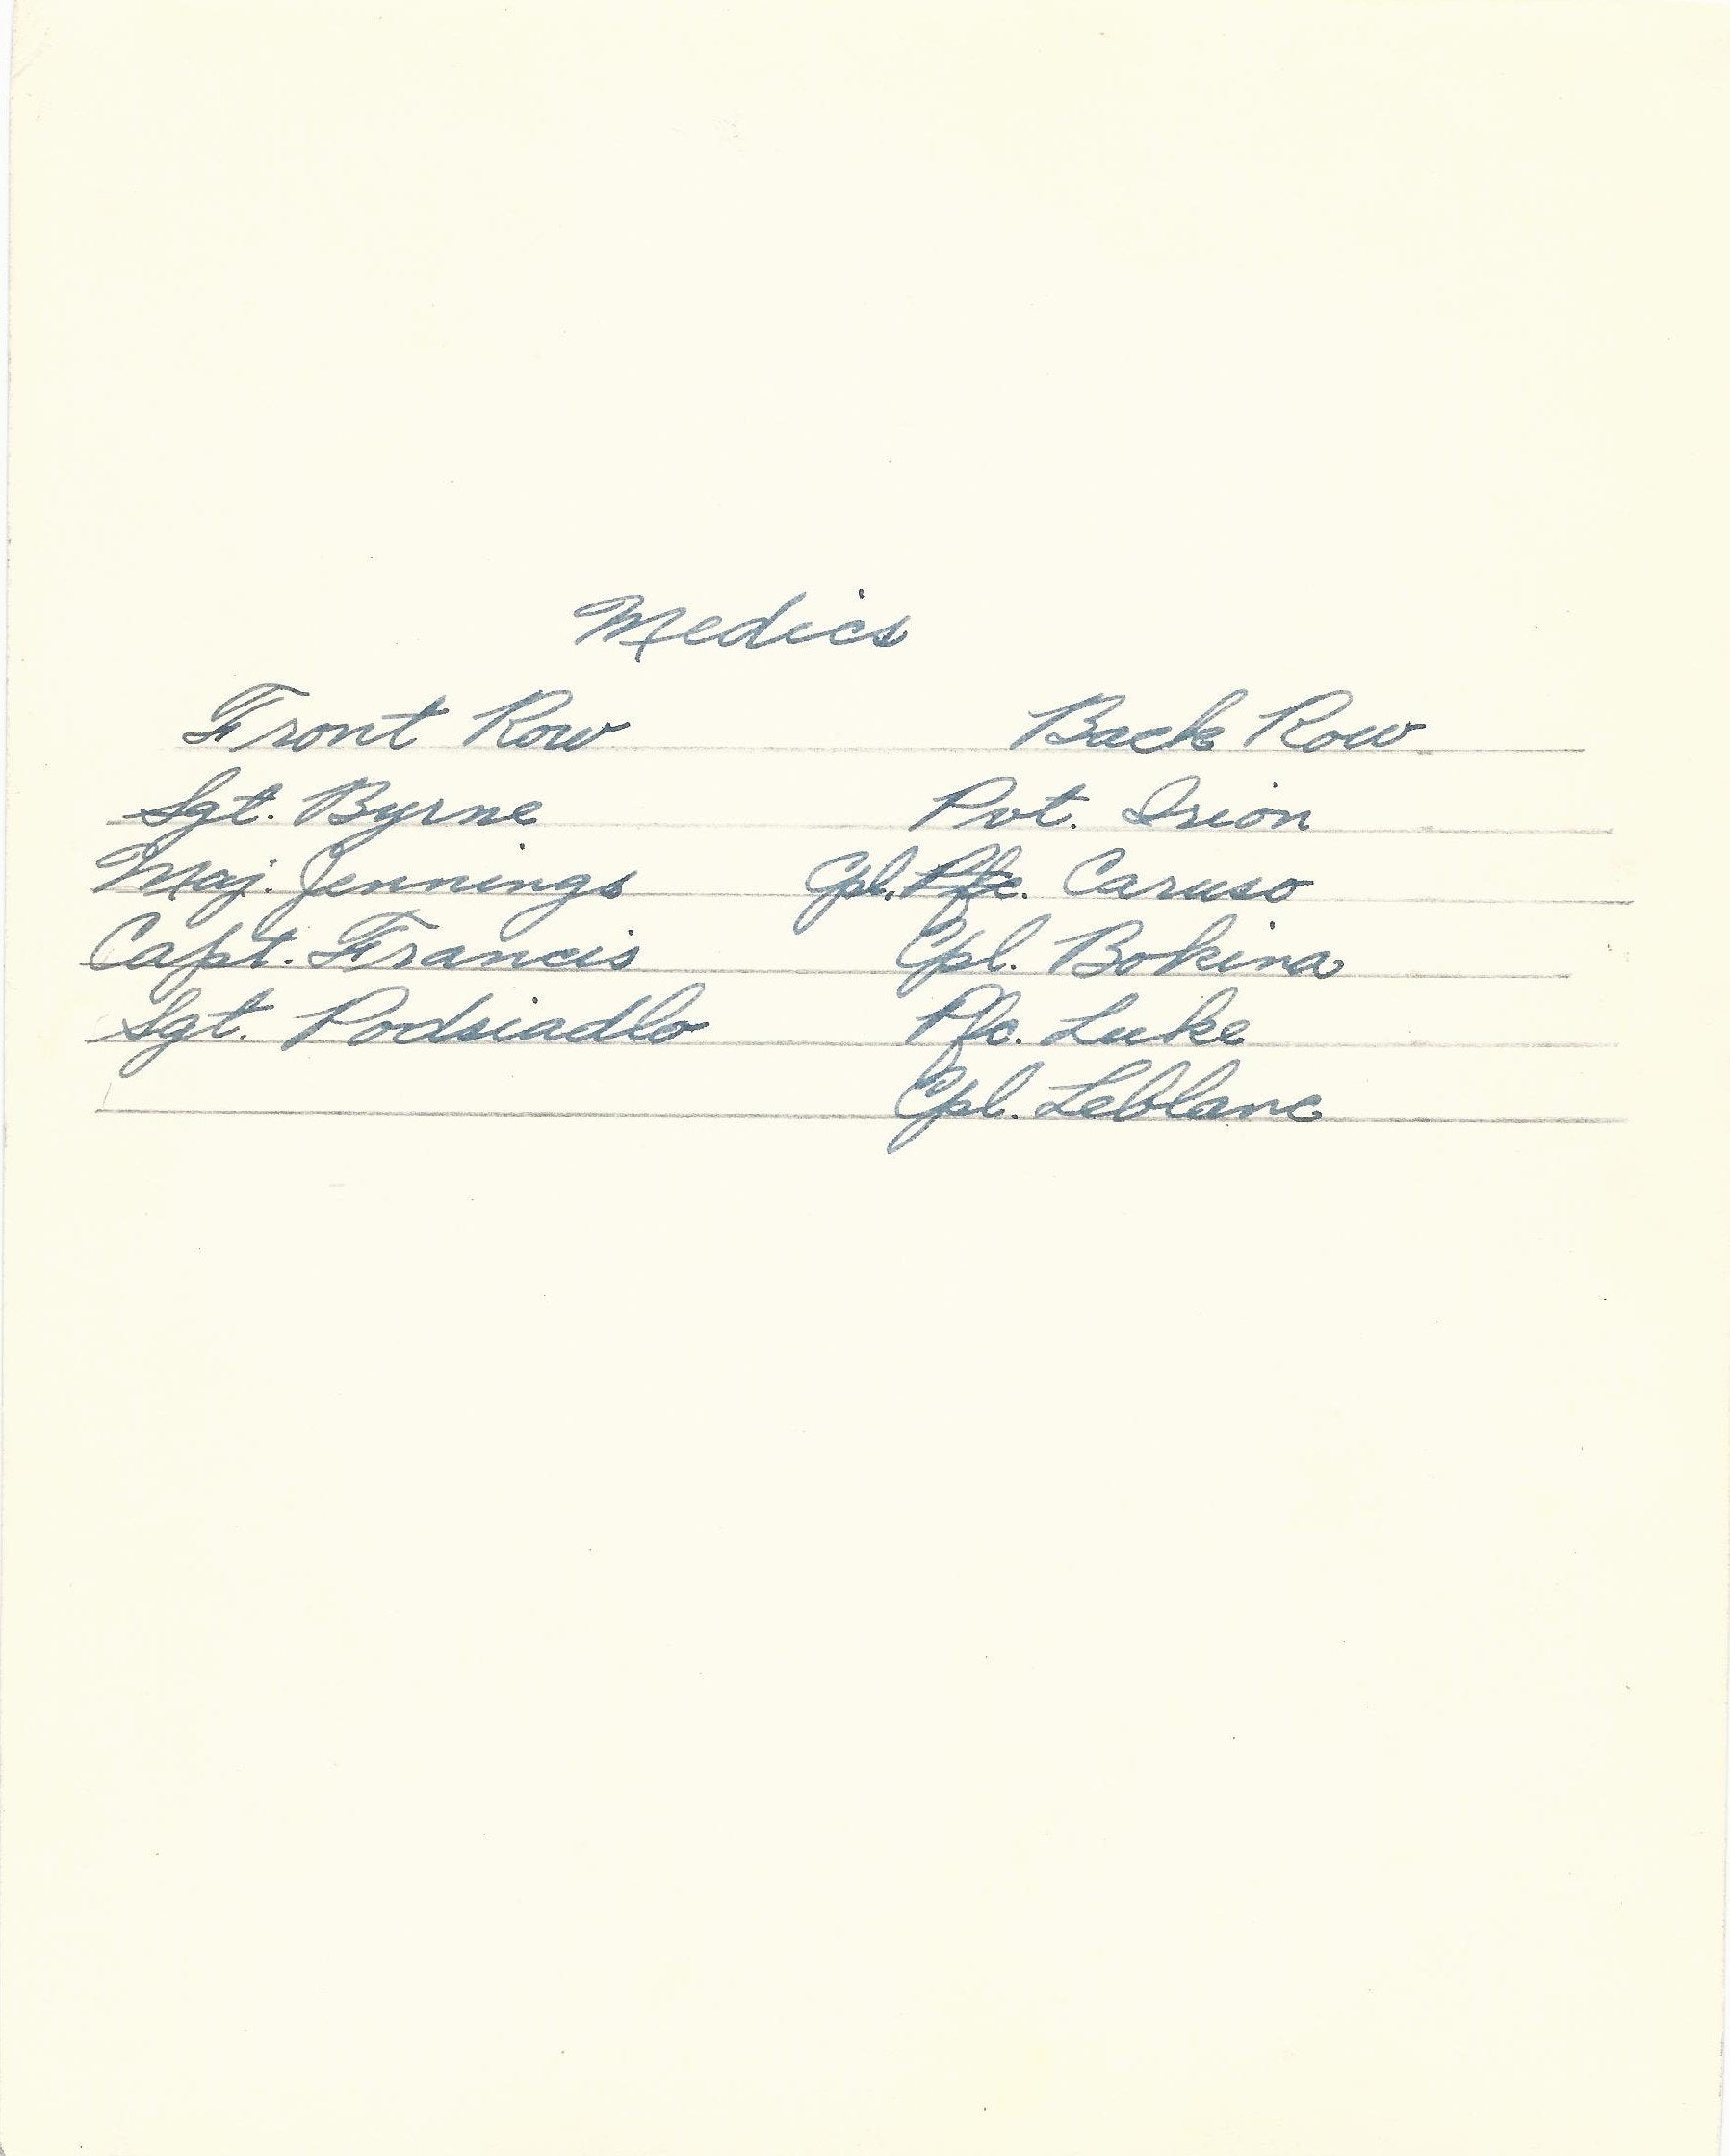 Medics
Front Row Back Row
Sgt. Byrne Pvt. Irion
Maj. Jennings Cpl. Pfc. Caruso
Capt. Francis Cpl. Bokina
Sgt. Podsiadlo Pfc. Luke
Cpl. Leblanc